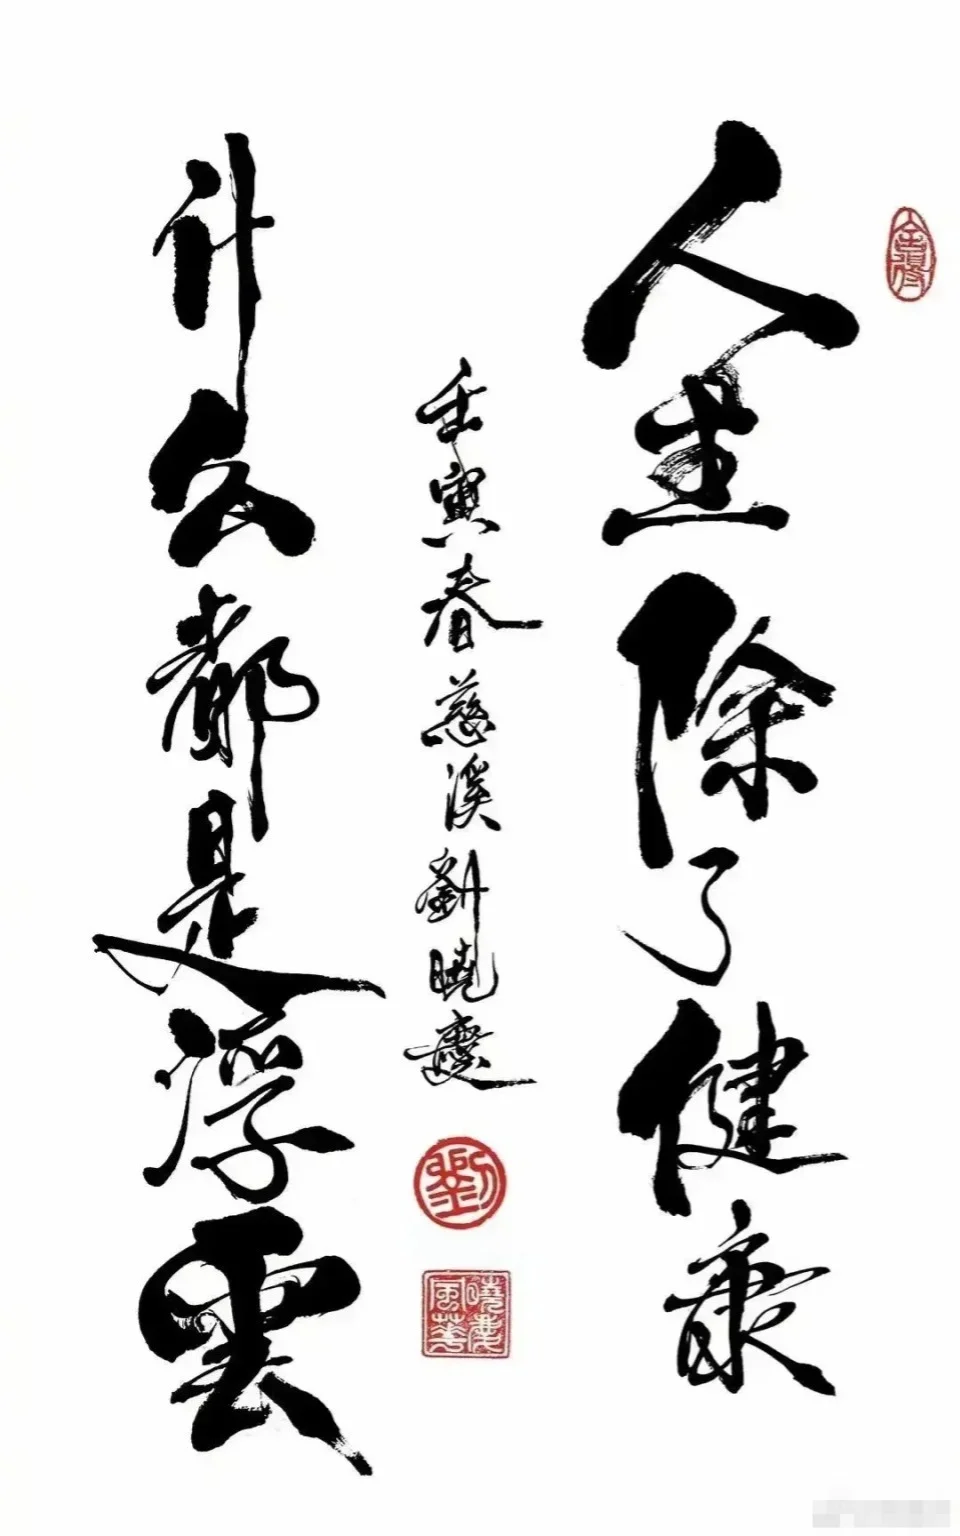 人生除了健康
什么都是浮雲
壬寅春慈溪劉曉慶
劉
曉慶風華